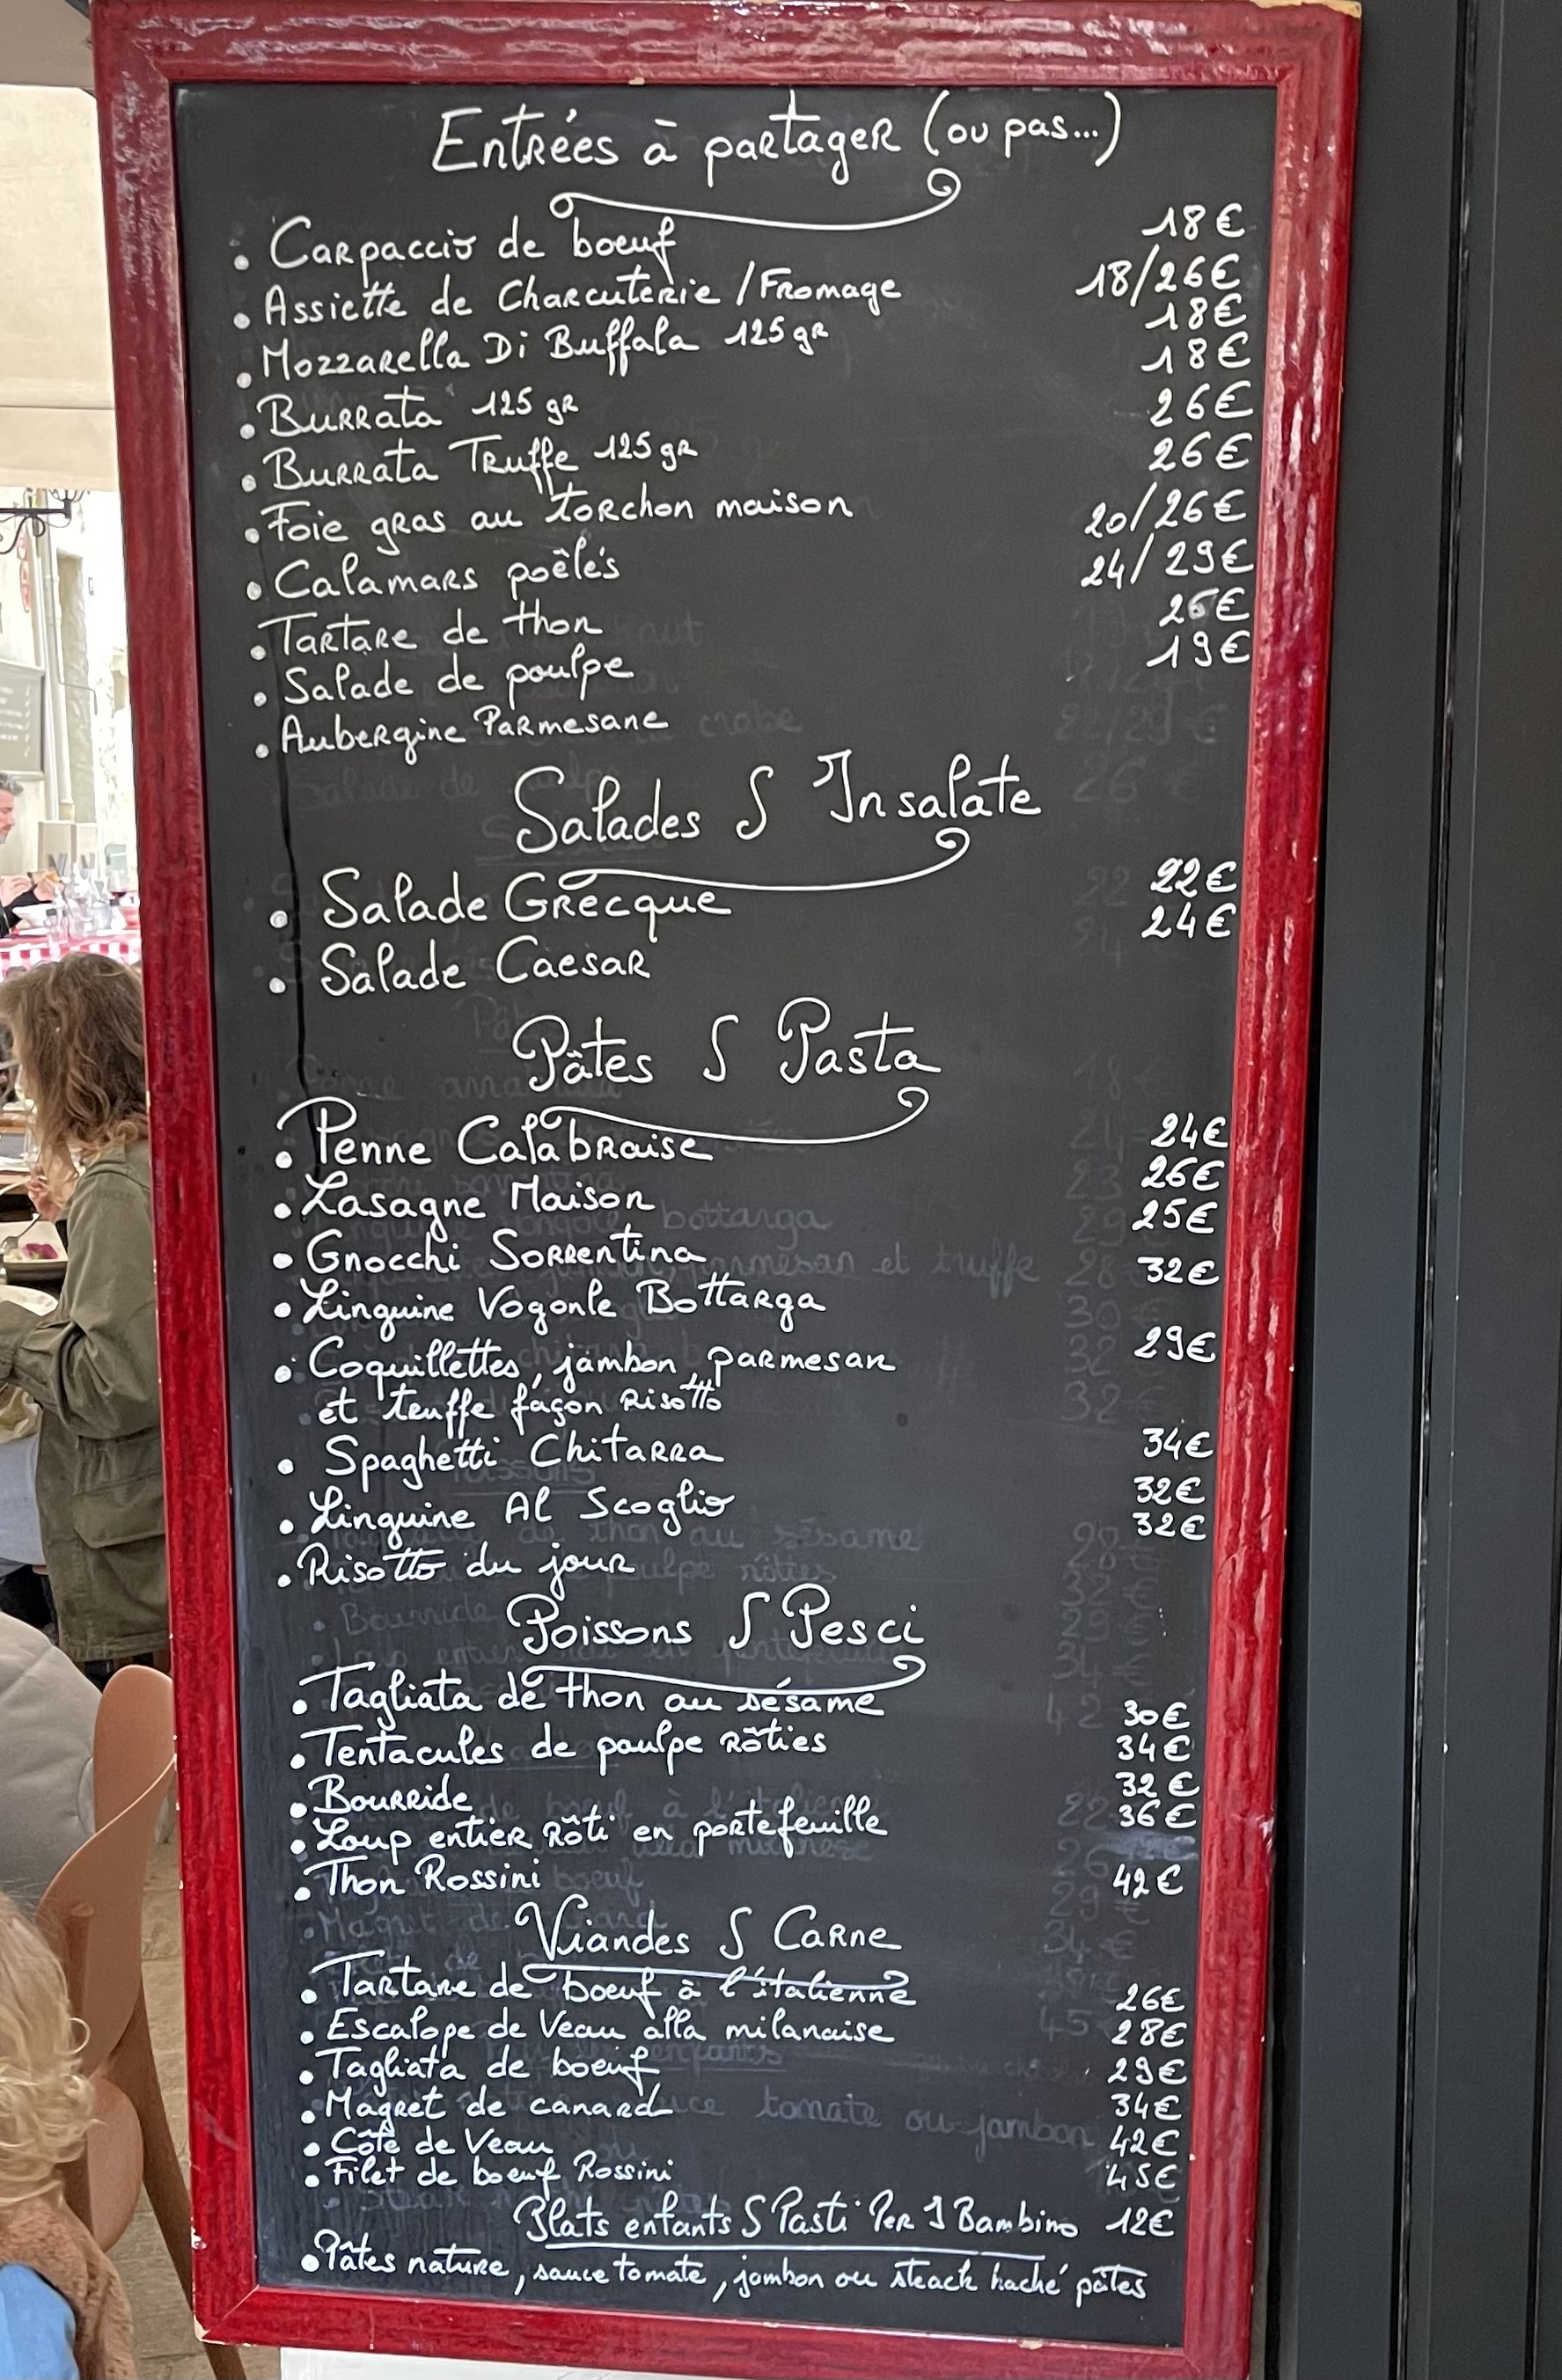 Entrées à partager (ou pas...)
• Carpaccio de boeuf 18€
• Assiette de Charcuterie / Fromage 18/26€
• Mozzarella Di Buffala 125 gr 18€
• Burrata 125 gr 18€
• Burrata Truffe 125 gr 26€
• Foie gras au torchon maison 26€
• Calamars poêlés 20/26€
• Tartare de thon 24/29€
• Salade de poulpe 26€
• Aubergine Parmesane 19€
Salades S Insalate
• Salade Grecque 22€
• Salade Caesar 24€
Pâtes S Pasta
• Penne Calabraise 24€
• Lasagne Maison 26€
• Gnocchi Sorrentina 25€
• Linguine Vogonle Bottarga 32€
• Coquillettes, jambon, parmesan 29€
et truffe façon Risotto
• Spaghetti Chitarra 34€
• Linguine Al Scoglio 32€
• Risotto du jour 32€
Poissons S Pesci
• Tagliata de thon au sésame 30€
• Tentacules de poulpe rôties 34€
• Bourride 32€
• Loup entier rôti en portefeuille 36€
• Thon Rossini 42€
Viandes S Carne
• Tartare de boeuf à l'italienne 26€
• Escalope de Veau alla milanaise 28€
• Tagliata de boeuf 29€
• Magret de canard 34€
• Côte de Veau 42€
• Filet de boeuf Rossini 45€
Plats enfants S Pasti Per I Bambino 12€
• Pâtes nature, sauce tomate, jambon ou steack haché pâtes